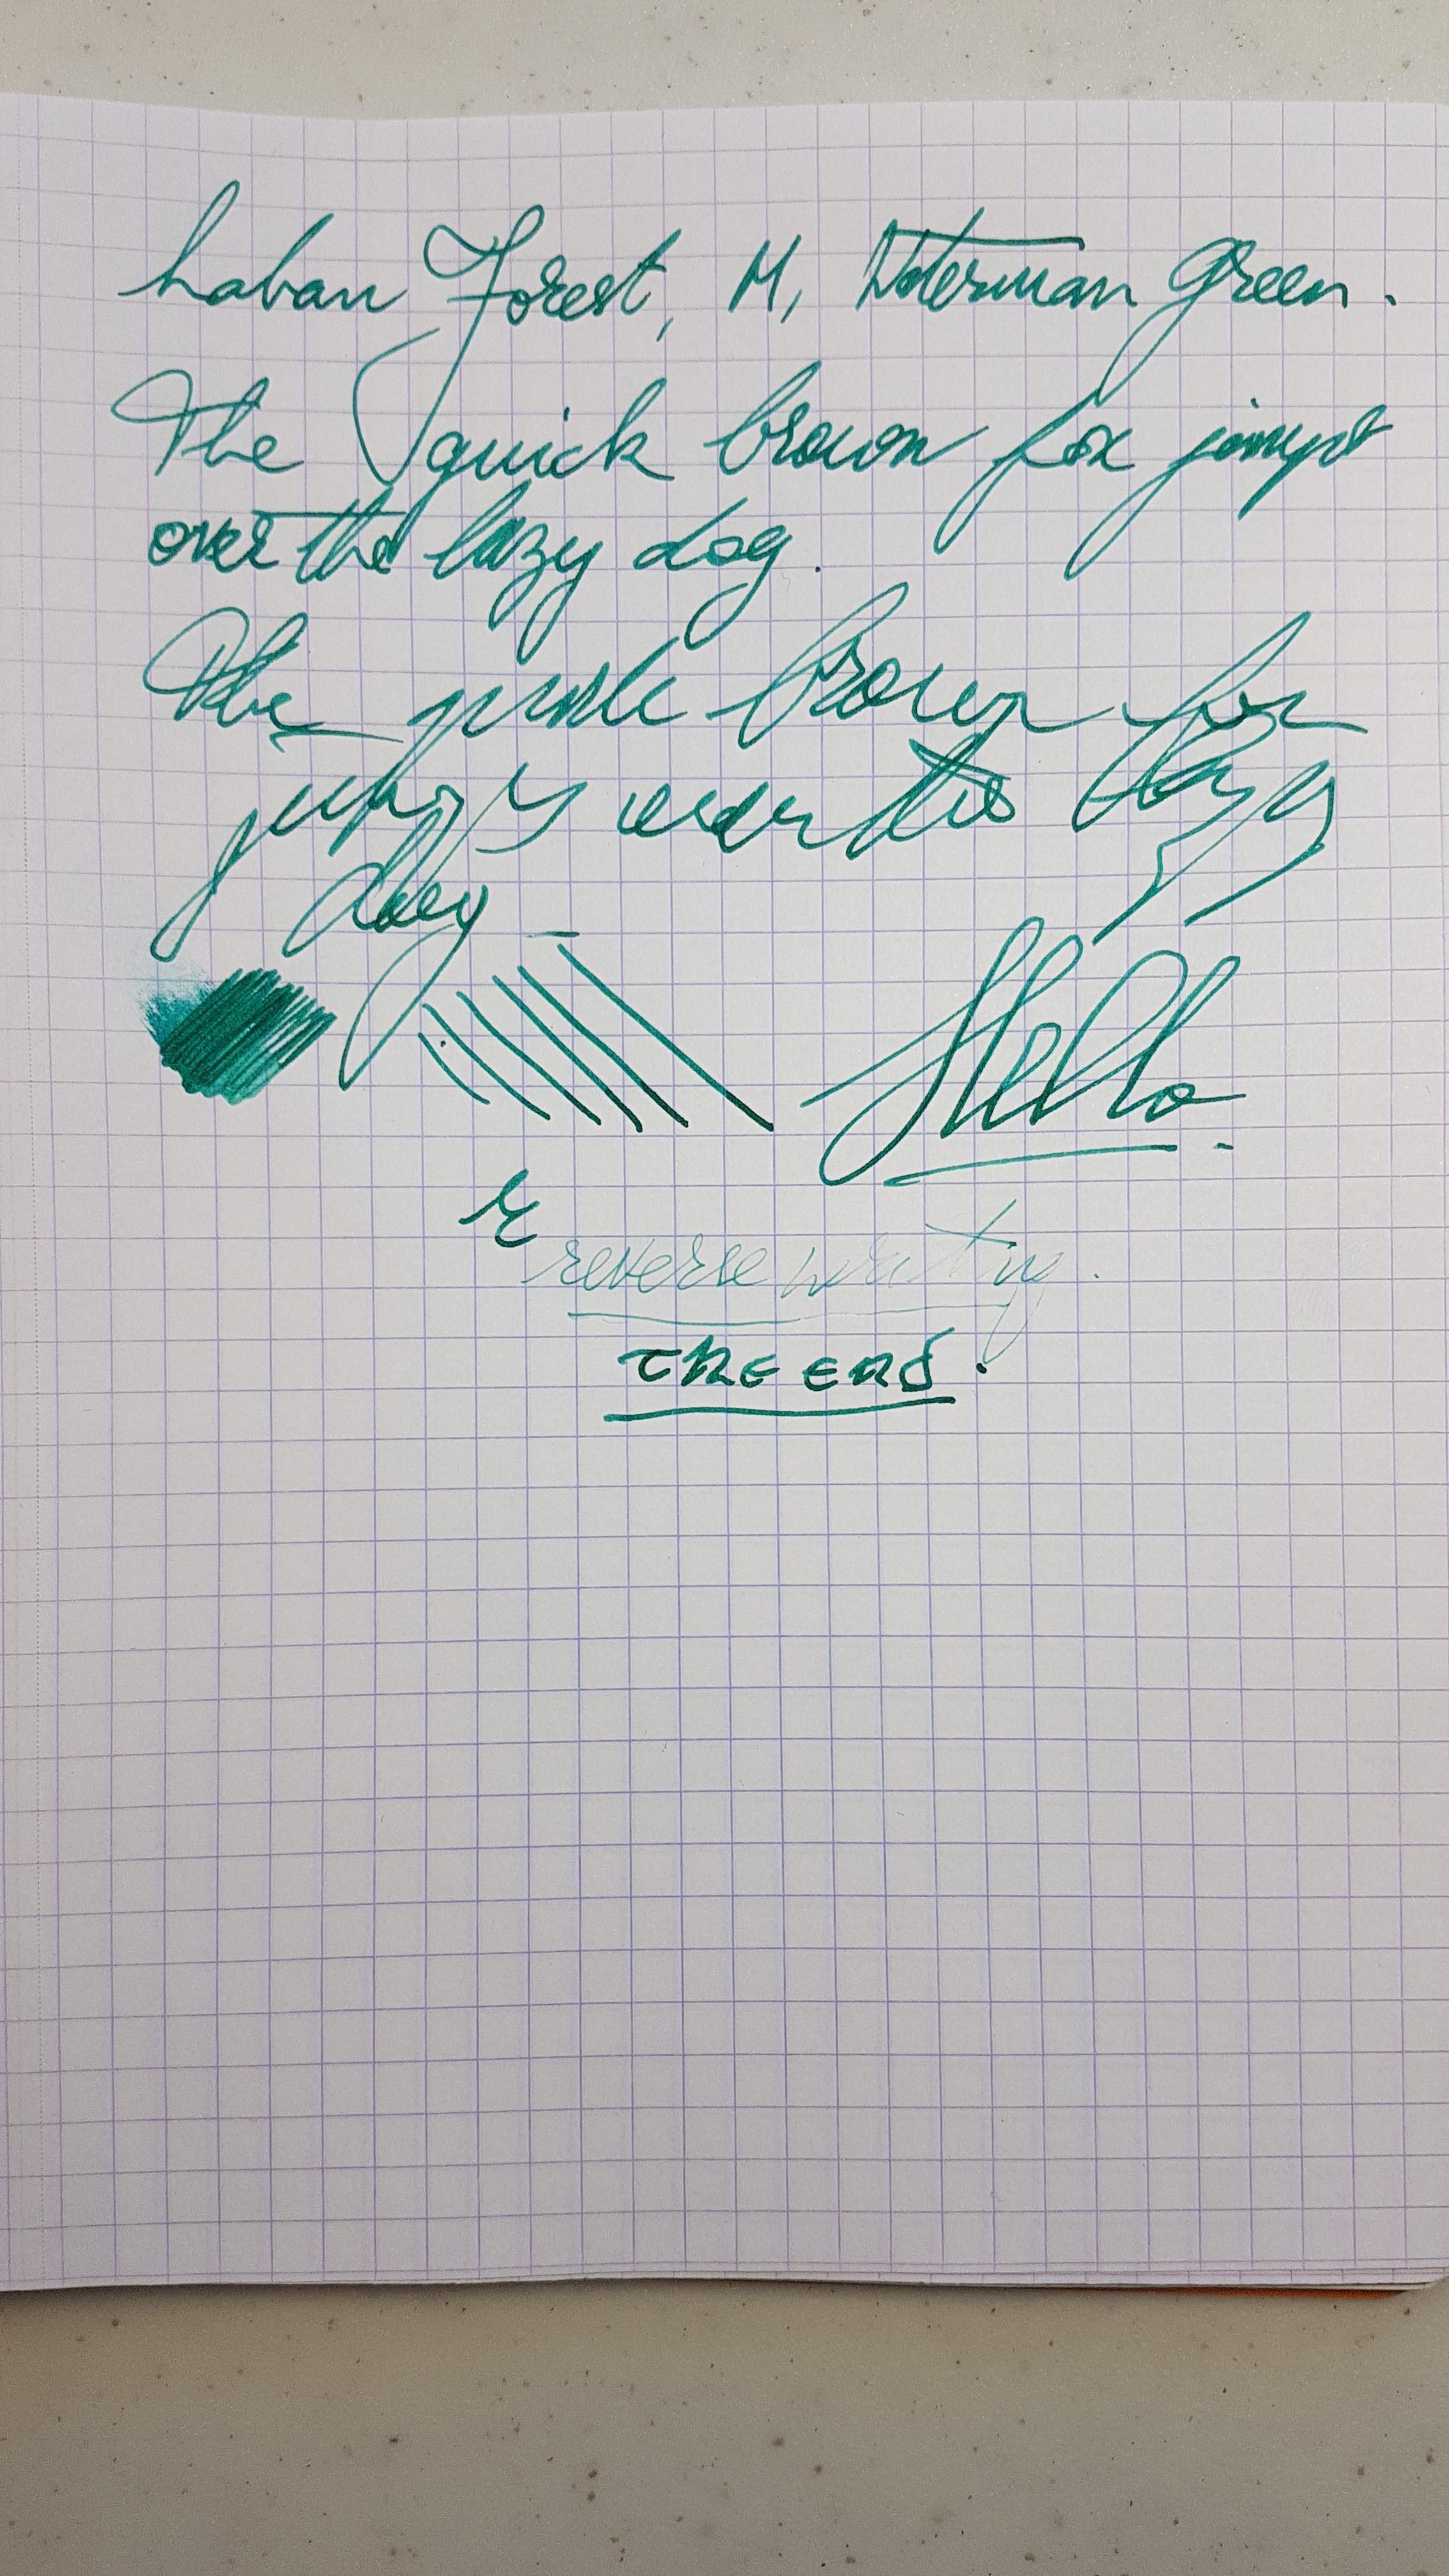 Laban Forest, M, Waterman Green.
The quick brown fox jumps
over the lazy dog.
The quick brown fox
jumps over the lazy
dog
Hello.
reverse writing.
The end.